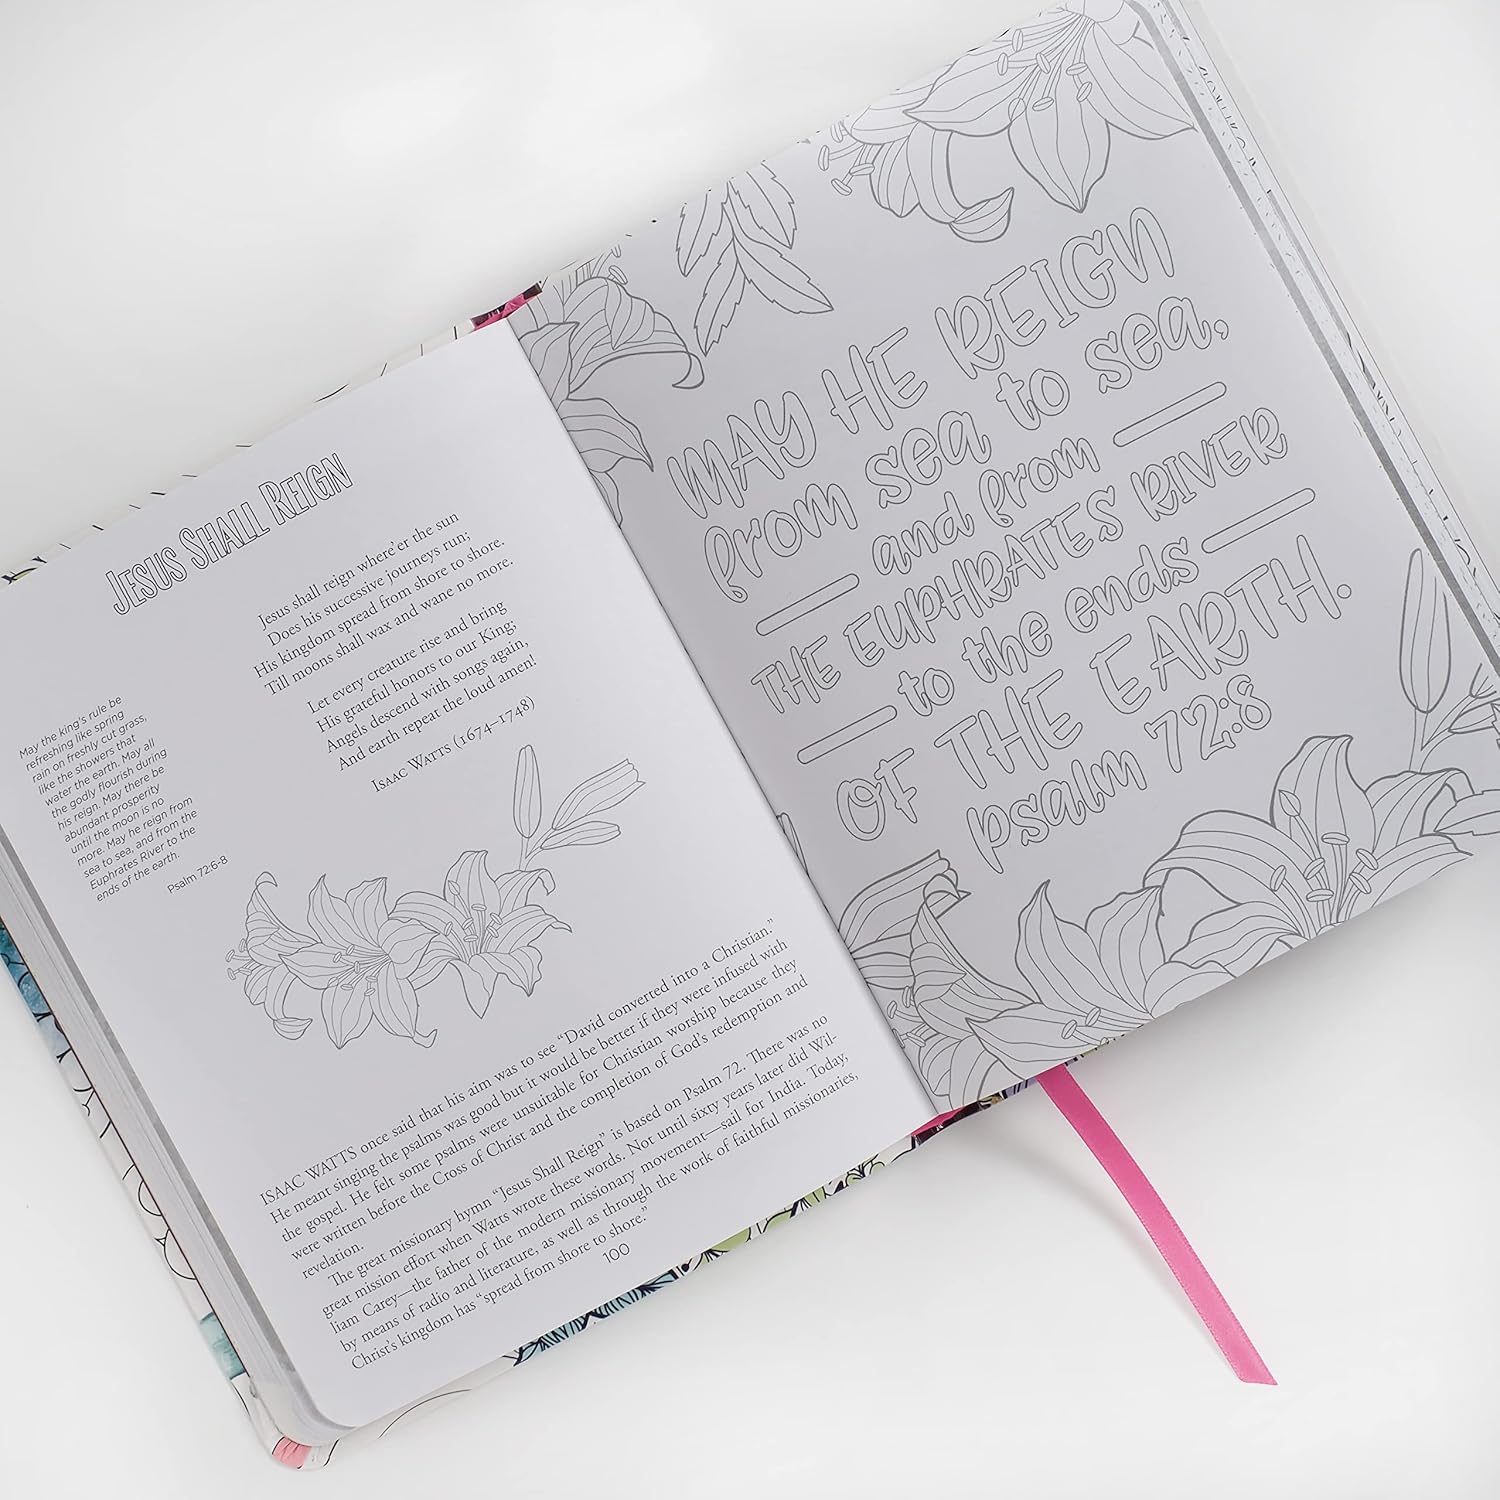 JESUS SHALL REIGN
Jesus shall reign where'er the sun
Does his successive journeys run;
His kingdom spread from shore to shore.
Till moons shall wax and wane no more.
Let every creature rise and bring
His grateful honors to our King;
Angels descend with songs again,
And earth repeat the loud amen!
ISAAC WATTS (1674–1748)
May the king's rule be
refreshing like spring
rain on freshly cut grass,
like the showers that
water the earth. May all
the godly flourish during
his reign. May there be
abundant prosperity
until the moon is no
more. May he reign from
sea to sea, and from the
Euphrates River to the
ends of the earth.
Psalm 72:6-8
ISAAC WATTS once said that his aim was to see “David converted into a Christian.”
He meant singing the psalms was good but it would be better if they were infused with
the gospel. He felt some psalms were unsuitable for Christian worship because they
were written before the Cross of Christ and the completion of God's redemption and
revelation.
The great missionary hymn “Jesus Shall Reign” is based on Psalm 72. There was no
great mission effort when Watts wrote these words. Not until sixty years later did Wil-
liam Carey—the father of the modern missionary movement—sail for India. Today,
by means of radio and literature, as well as through the work of faithful missionaries,
Christ's kingdom has “spread from shore to shore.”
100
MAY HE REIGN
from sea to sea,
and from
THE EUPHRATES RIVER
to the ends
OF THE EARTH.
psalm 72:8